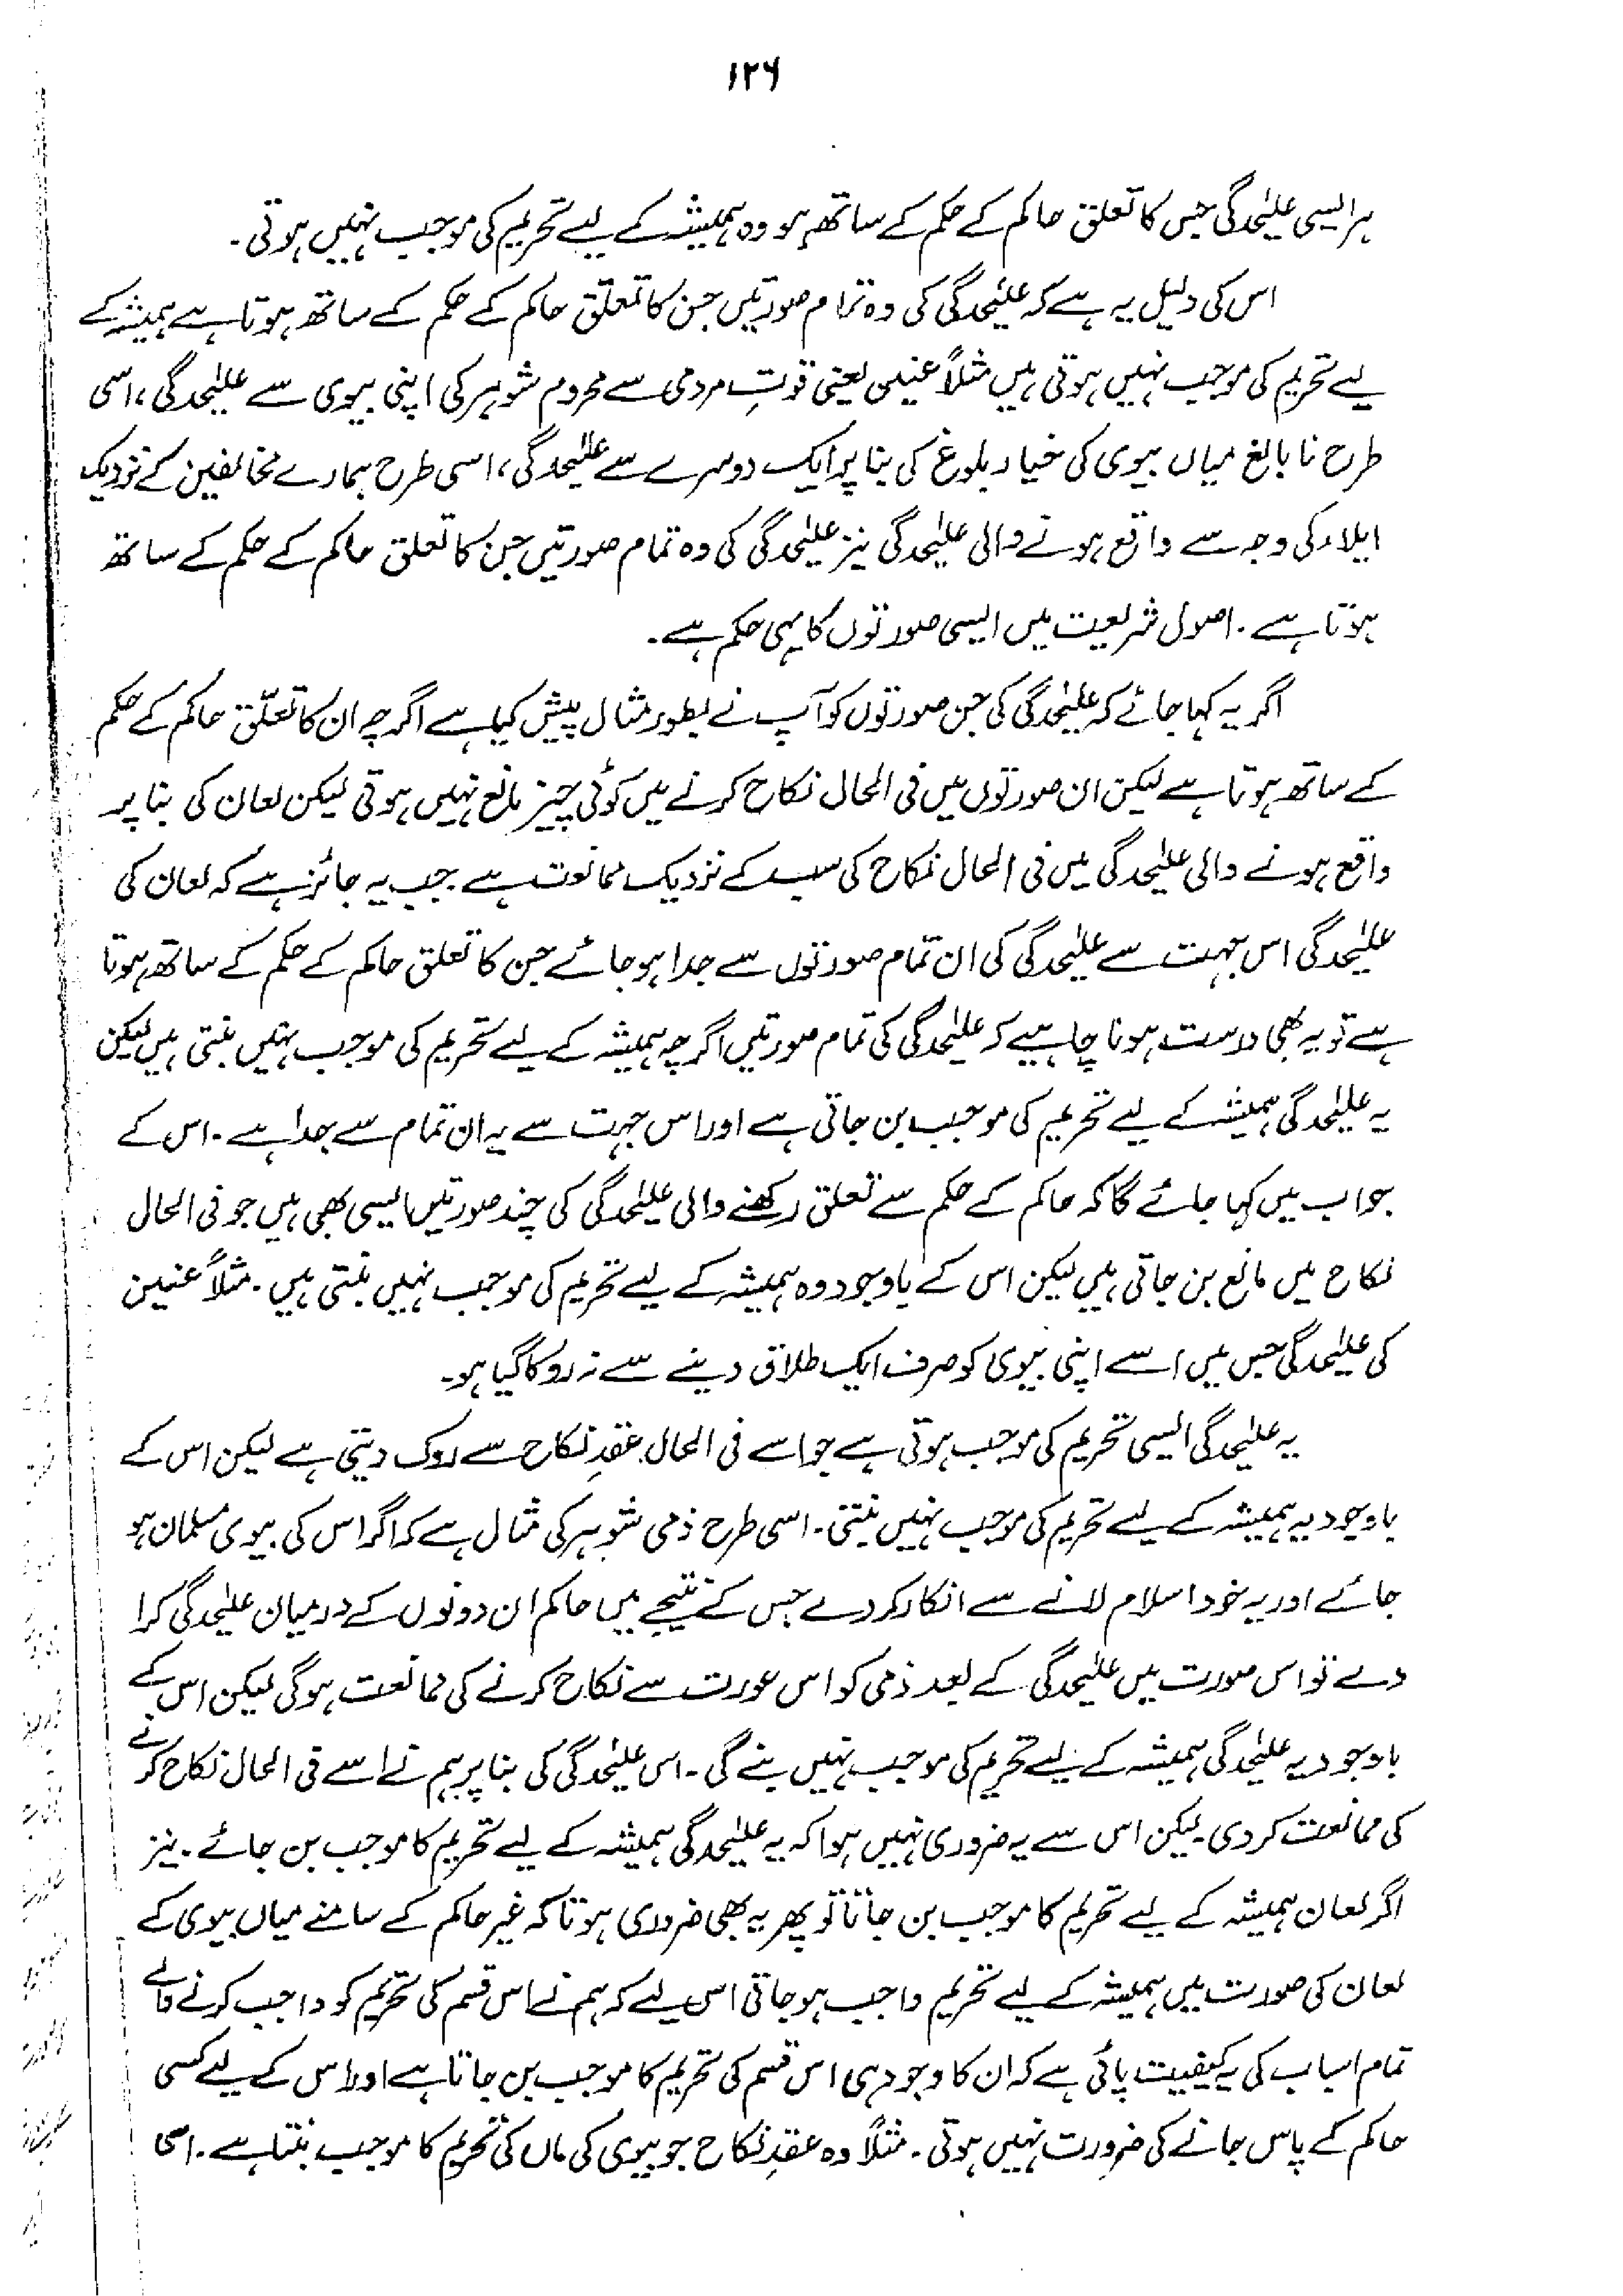 ۱۲۶
ہر ایسی علیٰحدگی جس کا تعلق حاکم کے حکم کے ساتھ ہو وہ ہمیشہ کے لیے تحریم کی موجب نہیں ہوتی۔
اس کی دلیل یہ ہے کہ علیٰحدگی کی وہ تمام صورتیں جن کا تعلّق حاکم کے حکم کے ساتھ ہوتا ہے ہمیشہ کے
لیے تحریم کی موجب نہیں ہوتی ہیں مثلاً عنین یعنی قوتِ مردمی سے محروم شوہر کی اپنی بیوی سے علیٰحدگی، اسی
طرح نابالغ میاں بیوی کی خیار بلوغ کی بنا پر ایک دوسرے سے علیٰحدگی، اسی طرح ہمارے مخالفین کے نزدیک
ایلاء کی وجہ سے واقع ہونے والی علیٰحدگی نیز علیٰحدگی کی وہ تمام صورتیں جن کا تعلق حاکم کے حکم کے ساتھ
ہوتا ہے۔ اصول شریعت میں ایسی صورتوں کا یہی حکم ہے۔
اگر یہ کہا جائے کہ علیٰحدگی کی جن صورتوں کو آپ نے بطور مثال پیش کیا ہے اگرچہ ان کا تعلّق حاکم کے حکم
کے ساتھ ہوتا ہے لیکن ان صورتوں میں فی الحال نکاح کرنے میں کوئی چیز مانع نہیں ہوتی لیکن لعان کی بنا پر
واقع ہونے والی علیٰحدگی میں فی الحال نکاح کی سب کے نزدیک ممانعت ہے جب یہ جائز ہے کہ لعان کی
علیٰحدگی اس جہت سے علیٰحدگی کی ان تمام صورتوں سے جدا ہو جائے جن کا تعلق حاکم کے حکم کے ساتھ ہوتا
ہے تو یہ بھی درست ہونا چاہیے کہ علیٰحدگی کی تمام صورتیں اگرچہ ہمیشہ کے لیے تحریم کی موجب نہیں بنتی ہیں لیکن
یہ علیٰحدگی ہمیشہ کے لیے تحریم کی موجب بن جاتی ہے اور اس جہت سے یہ ان تمام سے جدا ہے۔ اس کے
جواب میں کہا جائے گا کہ حاکم کے حکم سے تعلق رکھنے والی علیٰحدگی کی چند صورتیں ایسی بھی ہیں جو فی الحال
نکاح میں مانع بن جاتی ہیں لیکن اس کے باوجود وہ ہمیشہ کے لیے تحریم کی موجب نہیں بنتی ہیں۔ مثلاً عنین
کی علیٰحدگی جس میں اسے اپنی بیوی کو صرف ایک طلاق دینے سے نہ روکا گیا ہو۔
یہ علیٰحدگی ایسی تحریم کی موجب ہوتی ہے جو اسے فی الحال عقدِ نکاح سے روک دیتی ہے لیکن اس کے
باوجود یہ ہمیشہ کے لیے تحریم کی موجب نہیں بنتی۔ اسی طرح ذمی شوہر کی مثال ہے کہ اگر اس کی بیوی مسلمان ہو
جائے اور یہ خود اسلام لانے سے انکار کر دے جس کے نتیجے میں حاکم ان دونوں کے درمیان علیٰحدگی کرا
دے تو اس صورت میں علیٰحدگی کے بعد ذمی کو اس عورت سے نکاح کرنے کی ممانعت ہوگی لیکن اس کے
باوجود یہ علیٰحدگی ہمیشہ کے لیے تحریم کی موجب نہیں بنے گی۔ اس علیٰحدگی کی بنا پر ہم نے اسے فی الحال نکاح کرنے
کی ممانعت کر دی۔ لیکن اس سے یہ ضروری نہیں ہوا کہ یہ علیٰحدگی ہمیشہ کے لیے تحریم کا موجب بن جائے۔ نیز
اگر لعان ہمیشہ کے لیے تحریم کا موجب بن جاتا تو پھر یہ بھی ضروری ہوتا کہ غیر حاکم کے سامنے میاں بیوی کے
لعان کی صورت میں ہمیشہ کے لیے تحریم واجب ہو جاتی اس لیے کہ ہم نے اس قسم کی تحریم کو واجب کرنے والے
تمام اسباب کی یہ کیفیت پائی ہے کہ ان کا وجود ہی اس قسم کی تحریم کا موجب بن جاتا ہے اور اس کے لیے کسی
حاکم کے پاس جانے کی ضرورت نہیں ہوتی۔ مثلاً وہ عقدِ نکاح جو بیوی کی ماں کی تحریم کا موجب بنتا ہے۔ اسی